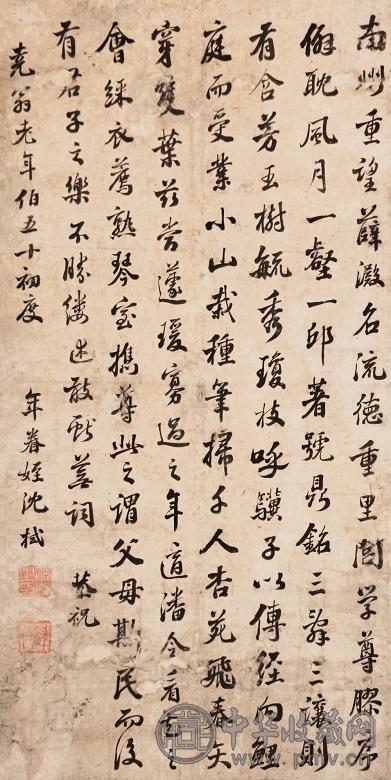 南州重望薛澱名流德重里閭学尊膠序
僻耽風月一壑一邱著號鼎銘三辭三讓則
有含芳玉樹毓秀瓊枝咏驥子以傳經向鯉
庭而受業小山栽種筆掃千人杏苑飛春矢
穿雙葉茲當蘧瑗寡過之年適潘令看花之
會綵衣薦熟琴室携尊此之謂父母斯民而後
有君子之樂不勝僂述敢献蕪詞 恭祝
堯翁老年伯五十初度
年眷姪沈栻
中华收藏网
www.pmv.cn